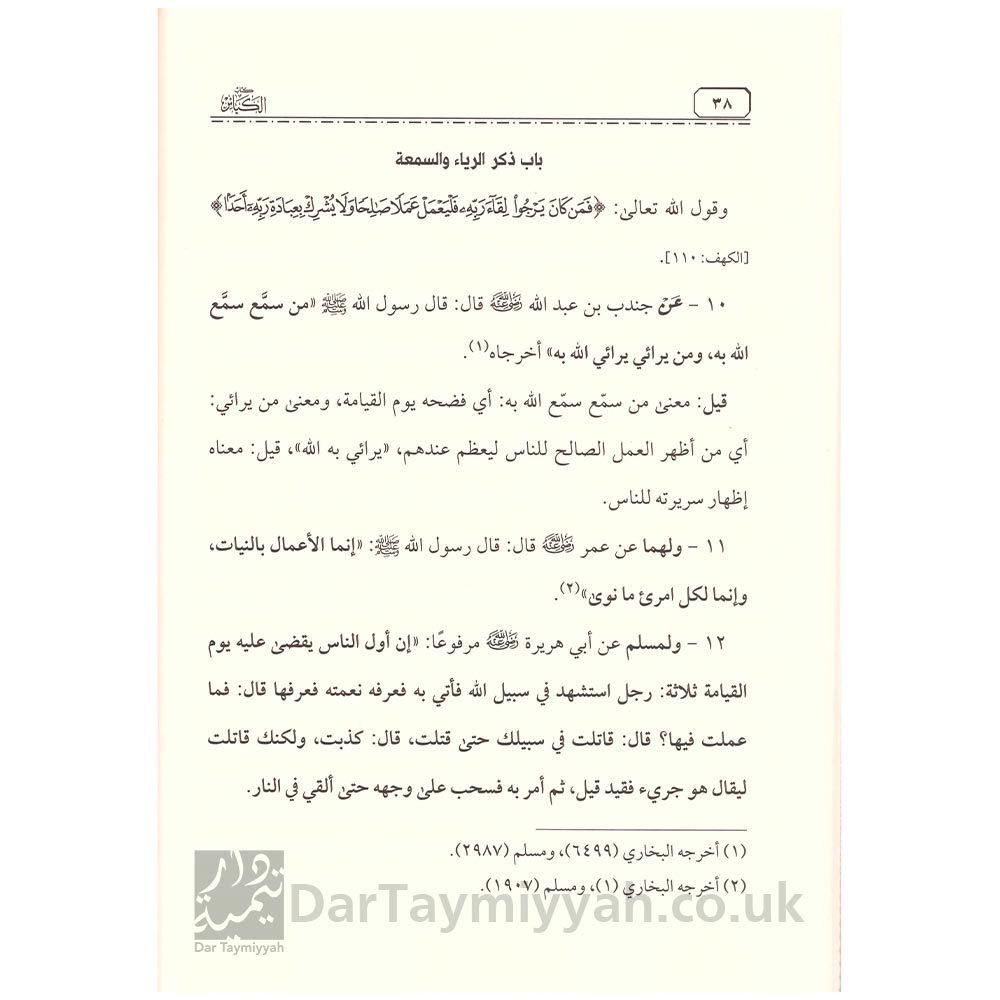 ٣٨
كتاب الكبائر
باب ذكر الرياء والسمعة
وقول الله تعالىٰ: ﴿فَمَن كَانَ يَرْجُوا۟ لِقَآءَ رَبِّهِۦ فَلْيَعْمَلْ عَمَلًا صَـٰلِحًا وَلَا يُشْرِكْ بِعِبَادَةِ رَبِّهِۦٓ أَحَدًۢا﴾
[الكهف: ١١٠].
١٠ - عَنْ جندب بن عبد الله رَضِيَ اللَّهُ عَنْهُ قال: قال رسول الله ﷺ «من سمَّع سمَّع
الله به، ومن يرائي يرائي الله به» أخرجاه(١).
قيل: معنىٰ من سمّع سمّع الله به: أي فضحه يوم القيامة، ومعنىٰ من يرائي:
أي من أظهر العمل الصالح للناس ليعظم عندهم، «يرائي به الله»، قيل: معناه
إظهار سريرته للناس.
١١ - ولهما عن عمر رَضِيَ اللَّهُ عَنْهُ قال: قال رسول الله ﷺ: «إنما الأعمال بالنيات،
وإنما لكل امرئ ما نوىٰ»(٢).
١٢ - ولمسلم عن أبي هريرة رَضِيَ اللَّهُ عَنْهُ مرفوعًا: «إن أول الناس يقضىٰ عليه يوم
القيامة ثلاثة: رجل استشهد في سبيل الله فأتي به فعرفه نعمته فعرفها قال: فما
عملت فيها؟ قال: قاتلت في سبيلك حتىٰ قتلت، قال: كذبت، ولكنك قاتلت
ليقال هو جريء فقيد قيل، ثم أمر به فسحب علىٰ وجهه حتىٰ ألقي في النار.
(١) أخرجه البخاري (٦٤٩٩)، ومسلم (٢٩٨٧).
(٢) أخرجه البخاري (١)، ومسلم (١٩٠٧).
دار تيمية
Dar Taymiyyah
DarTaymiyyah.co.uk